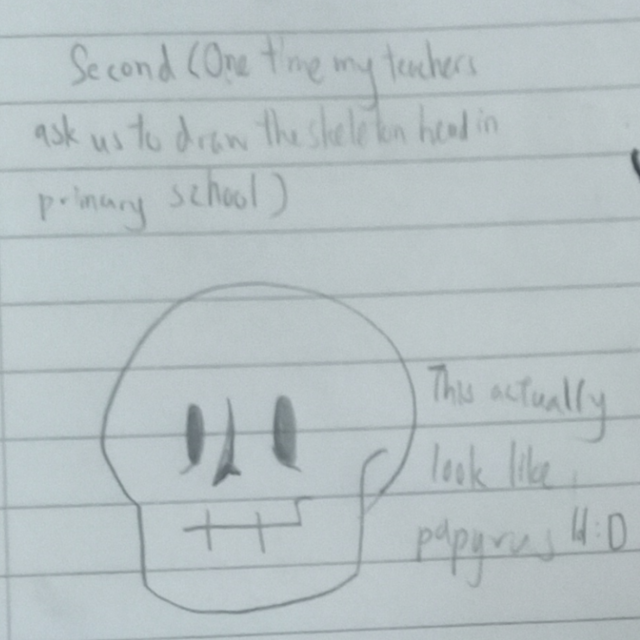 Second (One time my teachers
ask us to draw the skeleton head in
primary school)
This actually
look like
papyrus !! :D